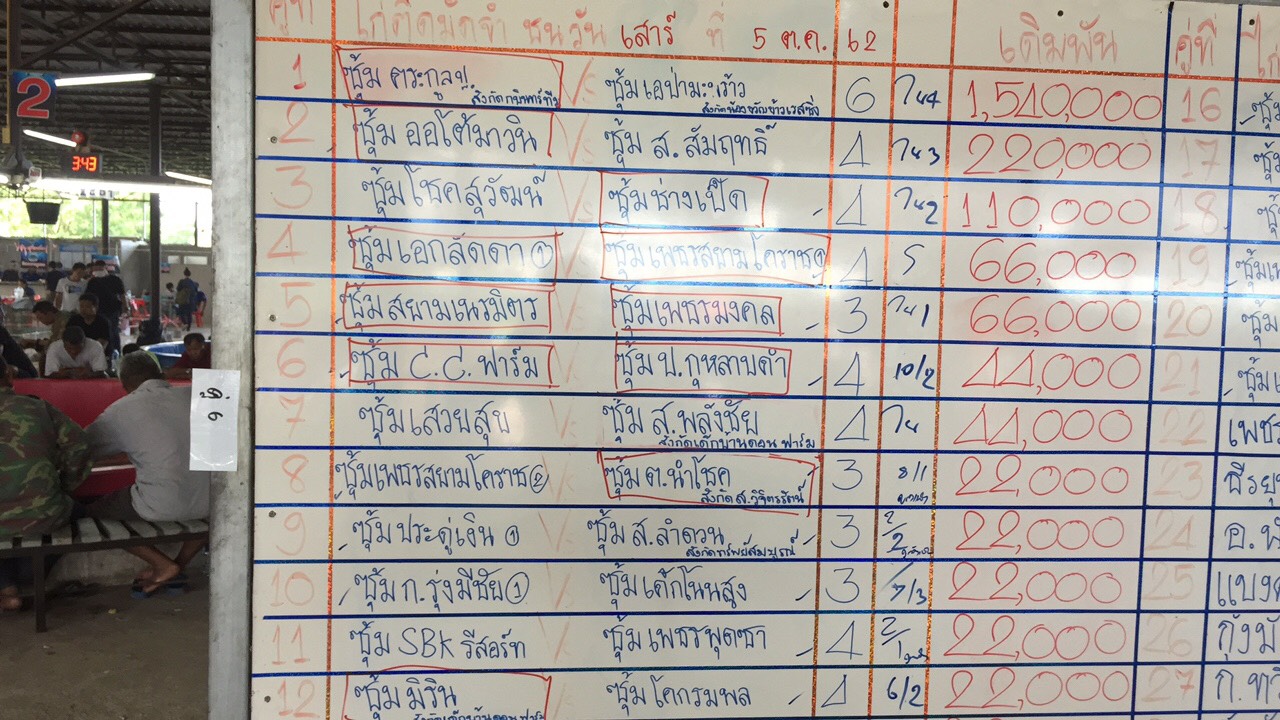 2
3:43
คู่ 6
คู่ที่ ไก่ติดมัดจำ ชนวัน เสาร์ ที่ 5 ต.ค. 62 เดิมพัน คู่ที่
1 ซุ้ม ตระกูลปู VS ซุ้มเอป่ามะพร้าว 6 1,510,000 16 ซุ้ม
2 ซุ้ม ออโต้มาวิน VS ซุ้ม ส.สัมฤทธิ์ 4 220,000 17 ซุ้ม
3 ซุ้มโชคสุวัฒน์ VS ซุ้มช่างเป็ด 4 110,000 18 ซุ้ม
4 ซุ้มเอกลัดดา 1 VS ซุ้มเพชรสยามโคราช 4 5 66,000 19
5 ซุ้มสยามเนรมิตร VS ซุ้มเพชรมงคล 3 66,000 20 ซุ้ม
6 ซุ้ม C.C. ฟาร์ม VS ซุ้ม ป.กุหลาบดำ 4 10/2 44,000 21
7 ซุ้มเสวยสุข VS ซุ้ม ส.พลังชัย 4 44,000 22 เพชร
สังกัดเด็กบ้านดอนฟาร์ม
8 ซุ้มเพชรสยามโคราช 2 VS ซุ้ม ต.นำโชค 3 8/1 22,000 23 ธีรยุ
สังกัด ส.วิจิตรรัตน์
9 ซุ้มประดู่เงิน 1 VS ซุ้ม ส.ลำดวน 3 2/2 22,000 24 อ.พ
สังกัดทรัพย์สมบูรณ์
10 ซุ้ม ก.รุ่งมีชัย 1 VS ซุ้มเด็กโนนสูง 3 7/3 22,000 25 แบงค
11 ซุ้ม SBK รีสอร์ท VS ซุ้มเพชรพุดซา 4 2/1 22,000 26 กุ้งมั
12 ซุ้มมิริน ซุ้มโคกรมพล 4 6/2 22,000 27 ก.ทวี